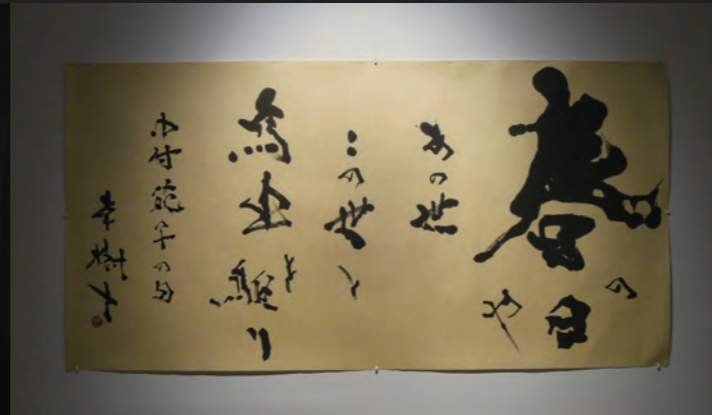 春の日や
あの世
この世と
馬車を駆り
中村苑子の句
幸樹書